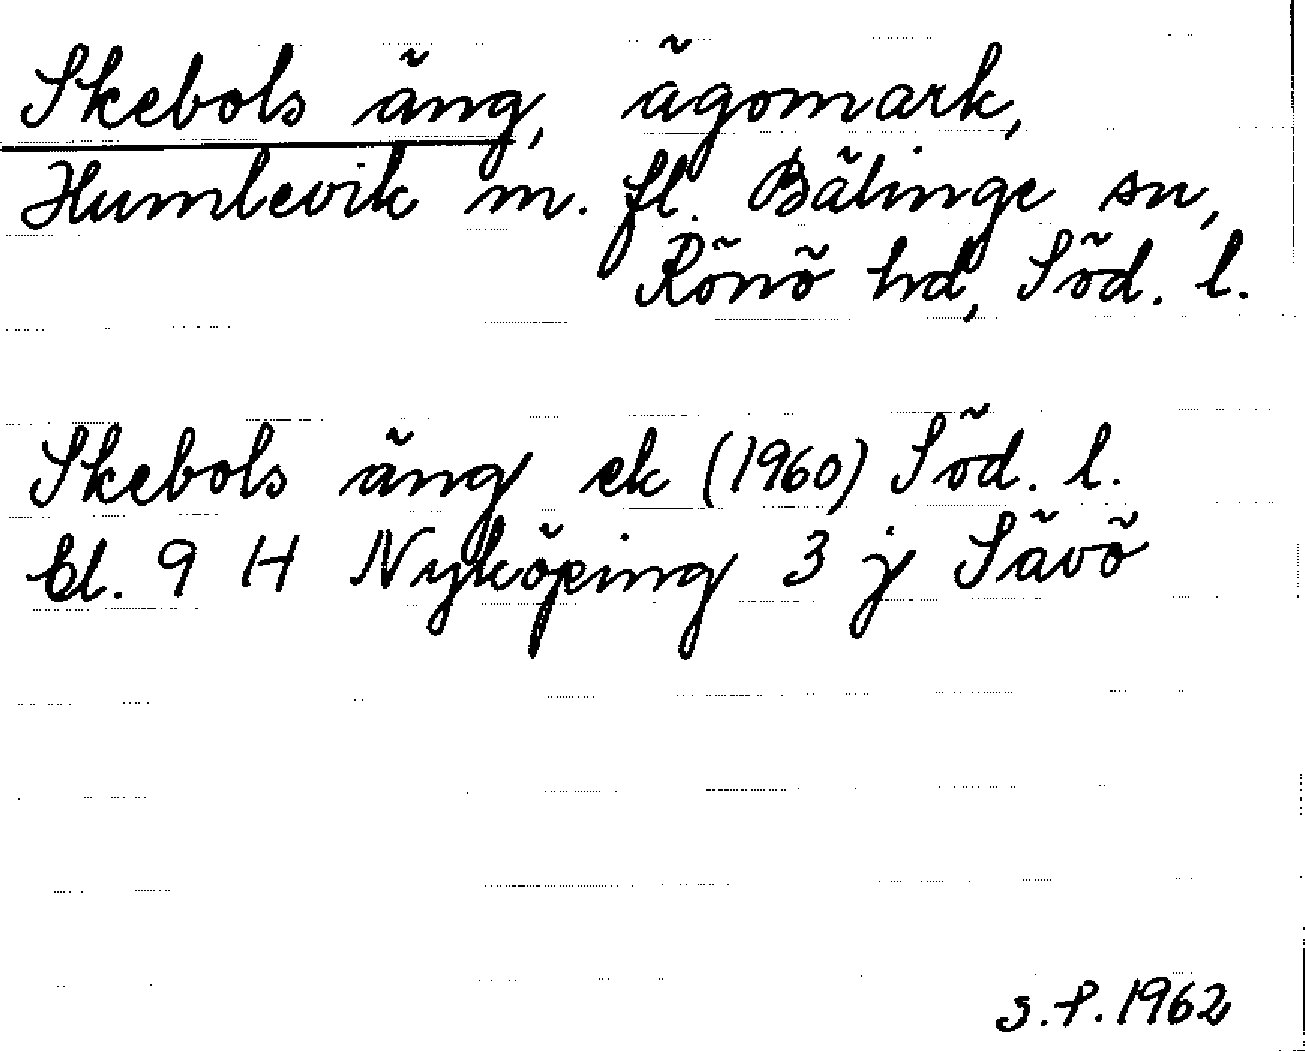 Skebols äng, ägomark,
Humlevik m. fl. Bälinge sn,
Rönö hd, Söd. l.
Skebols äng ek (1960) Söd. l.
bl. 9 H Nyköping 3 j Sävö
S.P. 1962